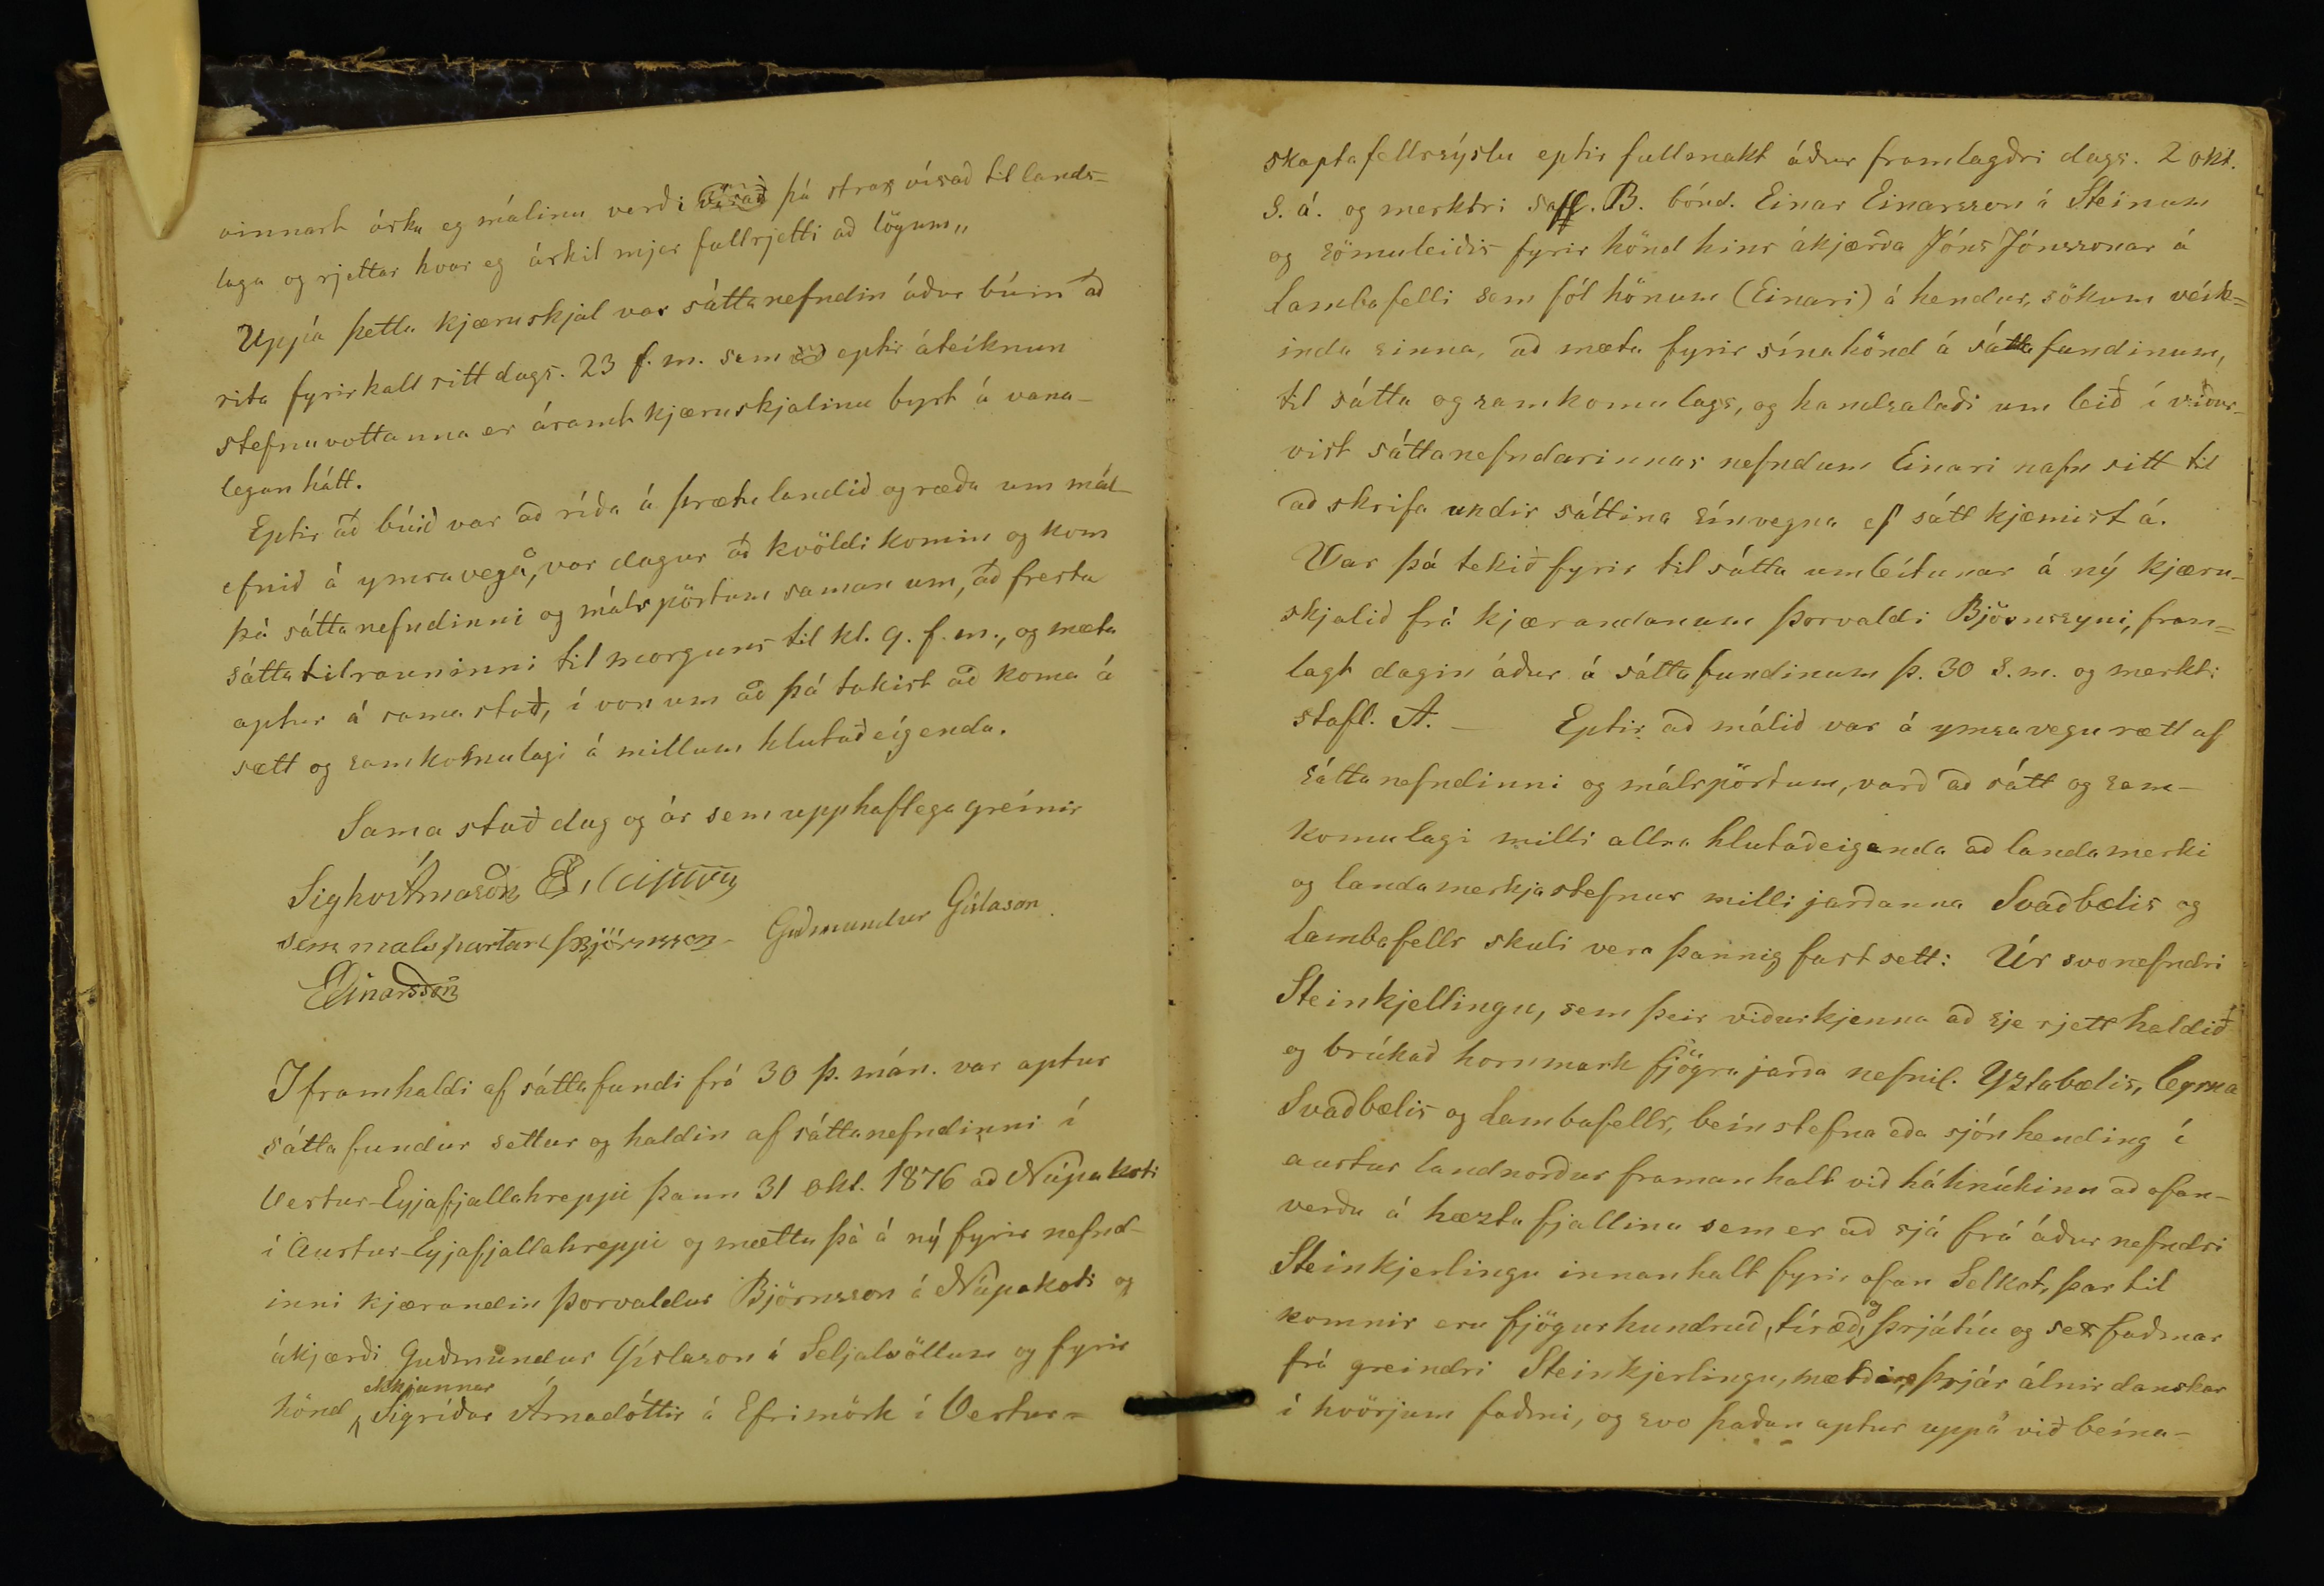 vinnast árka eg málinu verði vísað þá strax vísað til lands-
laga og rjettar hvar eg árkil mjer fullrjetti að lögum„
Uppá þetta kjæruskjal var sáttanefndin áður búin að
rita fyrirkall sitt dags. 23 f. m. sem eptir áteiknun
stefnuvottanna er ásamt kjæruskjalinu byrt á vana-
legan hátt.
Eptir að búið var að ríða á þrætulandið og ræða um mál-
efnið á ymsa vegu, var dagur að kvöldi komin og kom
þá sáttanefndinni og málspörtum saman um, að fresta
sáttatilrauninni til morguns til kl. 9. f. m., og mæta
aptur á sama stað, í von um að þá takist að koma á
sætt og samkomulagi á millum hlutaðeigenda.
Sama stað dag og ár sem upphaflega greinir
Sighv Árnason
sem malspartar ÞBjörnsson Guðmundur Gíslason.
EEinarsson
I framhaldi af sáttafundi frá 30 þ. mán. var aptur
sáttafundur settur og haldin af sáttanefndinni í
Vestur-Eyjafjallahreppi þann 31 okt. 1876 að Núpakoti
í Austur-Eyjafjallahreppi og mættu þá á ný fyrir nefnd-
inni kjærandin Þorvaldur Björnsson á Núpakoti og
ákjærði Guðmundur Gíslason á Seljalvöllum og fyrir
hönd ekkjunnar Sigríðar Árnadóttir á Efrimörk í Vestur-
skaptafellssýslu eptir fullmakt áður framlagðri dags. 2 okt.
s. á. og merktri B. bónd. Einar Einarsson á Steinum
og sömuleiðis fyrir hönd hins ákjærða Jóns Jónssonar á
Lambafelli sem fól hönum (Einari) á hendur, sökum veik-
inda sinna, að mæta fyrir sína hönd á sáttafundinum,
til sátta og samkomulags, og handsalaði um leið í viður-
vist sáttanefndarinnar nefndum Einari nafn sitt til
að skrifa undir sáttina sín vegna ef sátt kjæmist á.
Var þá tekið fyrir til sátta umleitunar á ný kjæru-
skjalið frá kjærandanum Þorvaldi Björnssyni, fram-
lagt dagin áður á sáttafundinum þ. 30 s. m. og merkt:
stafl. A. — Eptir að málið var á ymsa vegu rætt af
sáttanefndinni og málspörtum, varð að sátt og sam-
komulagi milli allra hlutaðeiganda að landamerki
og landamerkjastefnur milli jarðanna Svaðbælis og
Lambafells skuli vera þannig fastsett: Úr svonefndri
Steinkjellingu, sem þeir viðurkjenna að sje rjett haldið
og brúkað hornmark fjögra jarða nefnil. Yztabælis, Leyrna
Svaðbælis og Lambafells, bein stefna eða sjónhending í
austur landnorður framanhalt við háhnúkinn að ofan-
verðu á hæzta fjallinu sem er að sjá frá áður nefndri
Steinkjerlingu innanhalt fyrir ofan Selkot, þar til
komnir eru fjögurhundruð, tíræð, og þrjátíu og sex faðmar
frá greindri Steinkjerlingu, þrjár álnir danskar
í hvörjum faðmi, og svo þaðan aptur uppá við beina-